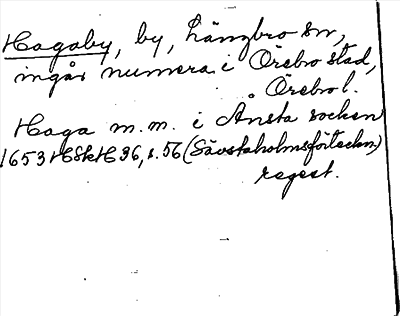 Hagaby, by, Längbro sn,
ingår numera i Örebro stad,
Örebro l.
Haga m.m. i Ånsta socken
1653 HSH 36, s. 56 (Sävstaholmsförteckn.)
regest.